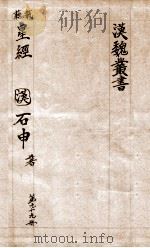 漢魏叢書
星經
漢 石申 著
第七十九冊